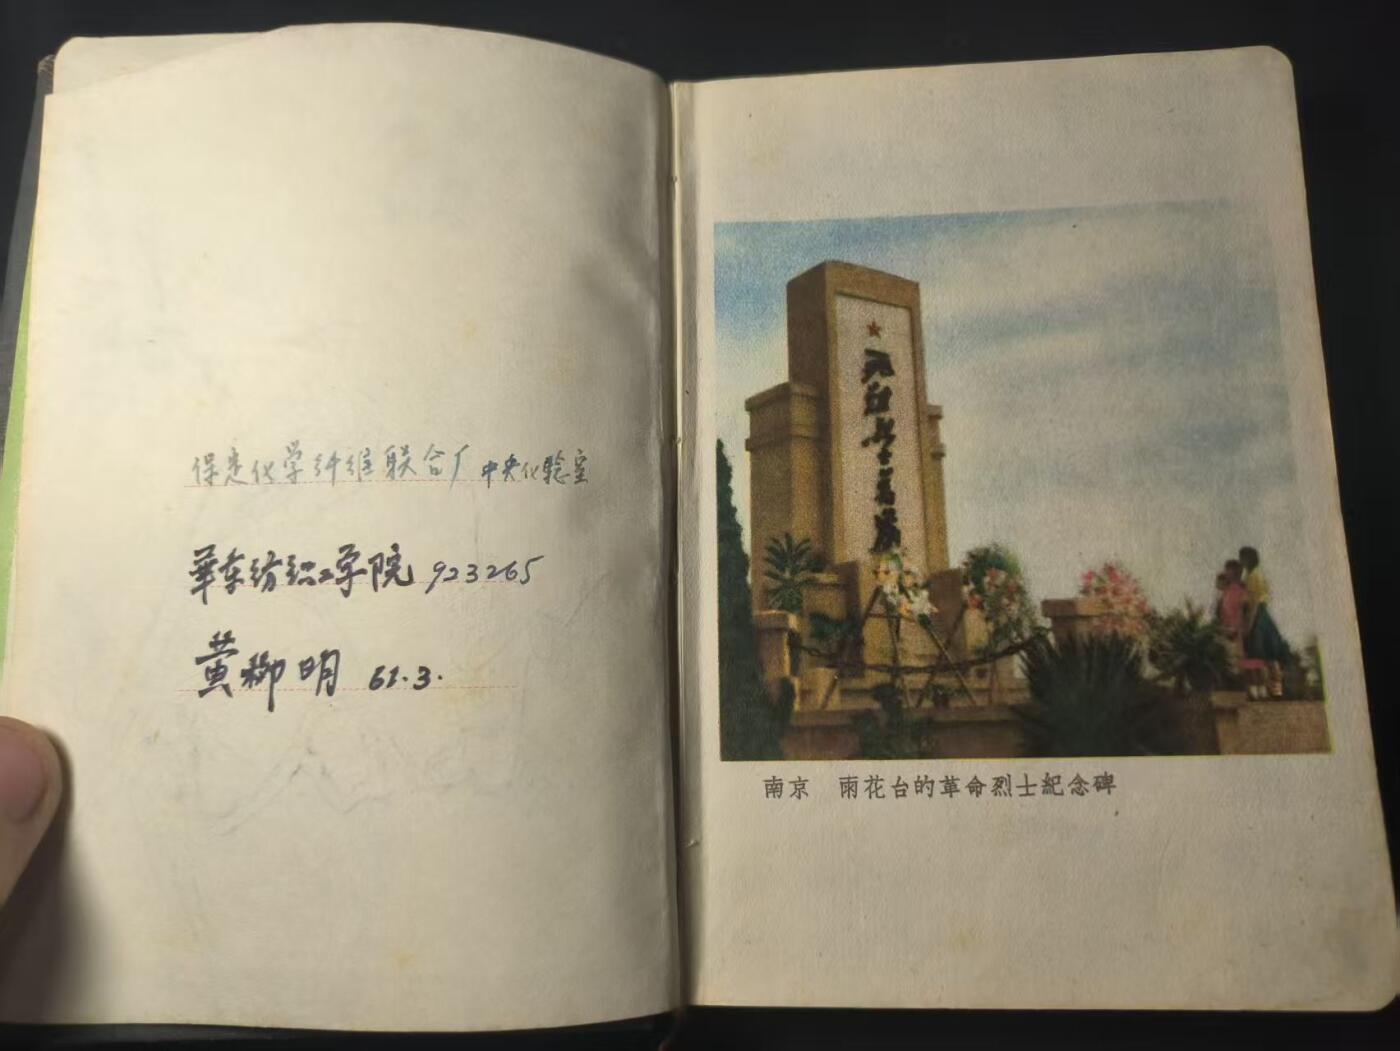 保定化学纤维联合厂中央化驗室
華东纺织工学院 923265
黄柳明 61.3.
南京 雨花台的革命烈士紀念碑